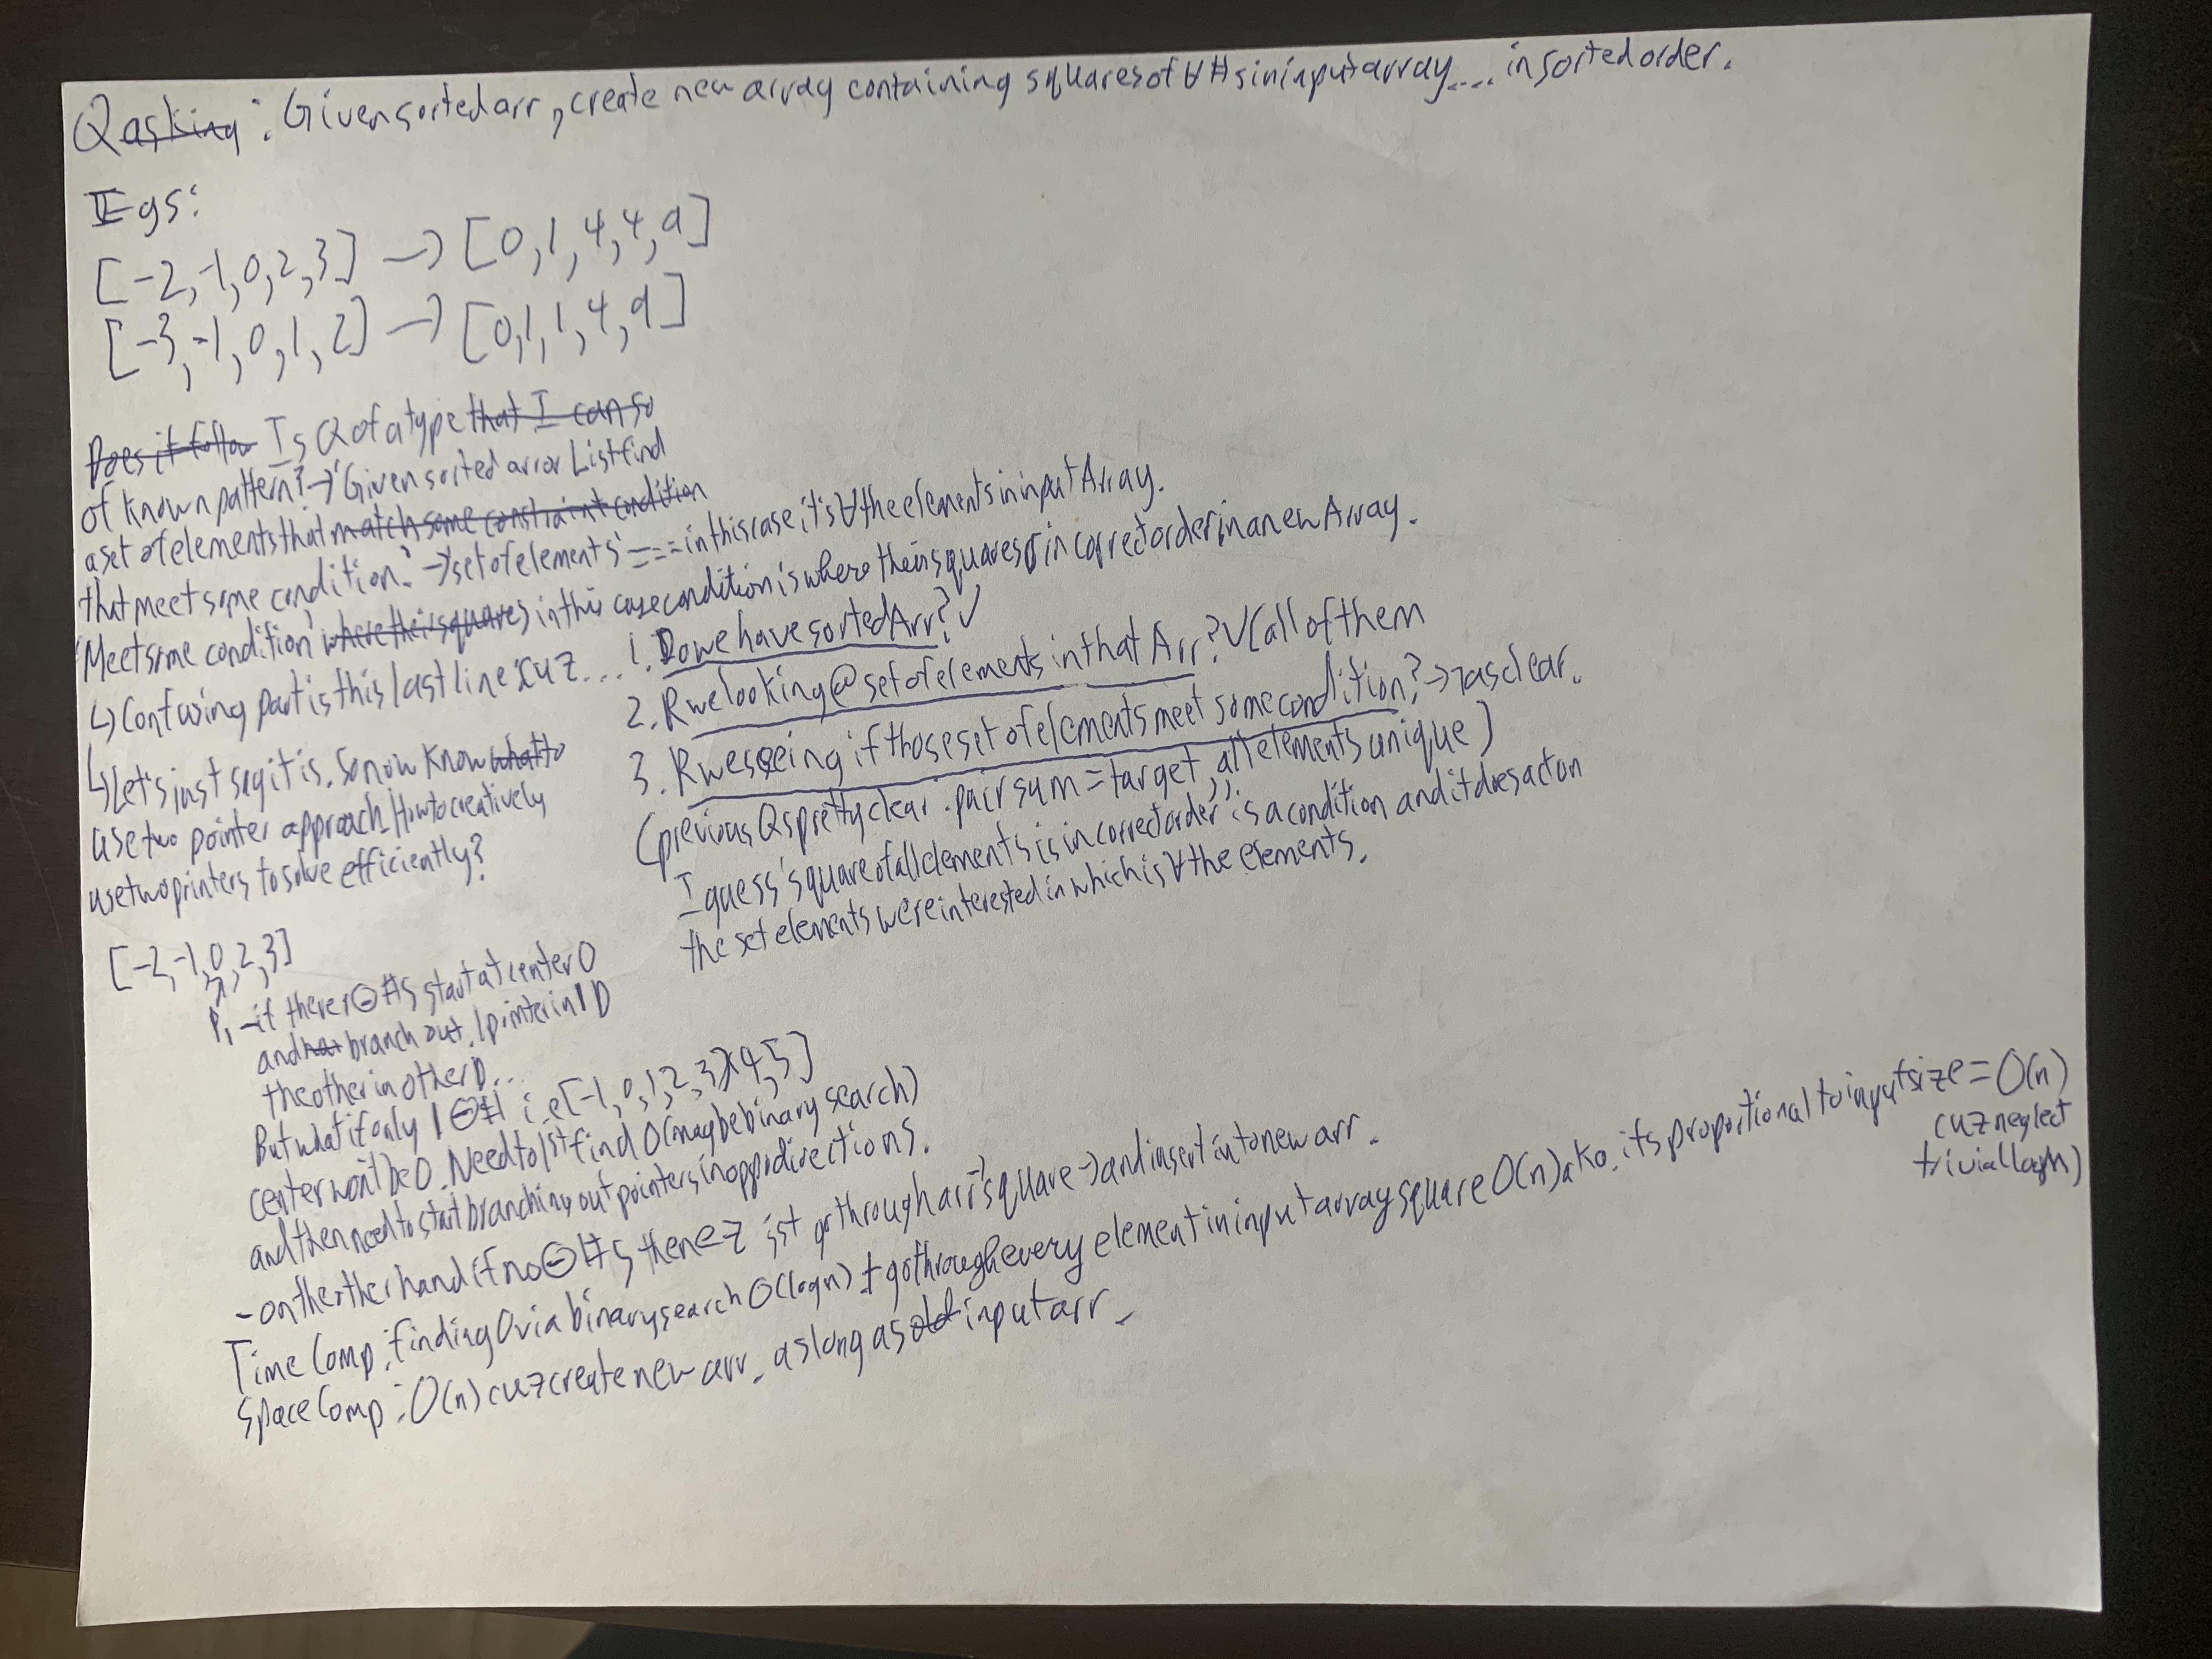 Qasking: Given sorted arr, create new array containing squares of ∀ #s in input array.... in sorted order.
Egs:
[-2,-1,0,2,3] → [0,1,4,4,9]
[-3,-1,0,1,2] → [0,1,1,4,9]
Does it follow Is Q of a type that I can so
of known pattern? → 'Given sorted arr or List find
a set of elements that match some constraint condition
that meet some condition.' → 'set of elements' === in this case, it's ∀ the elements in input Array.
'Meet some condition' where their squares in this case condition is where their squares r in correct order in a new Array.
↳ Confusing part is this last line cuz... 1. Do we have sorted Arr? ✓
2. R we looking @ set of elements in that Arr? ✓ (all of them
3. R we seeing if those set of elements meet some condition? → ¬ as clear.
(previous Qs pretty clear. pair sum = target, all elements unique)
I guess 'square of all elements is in correct order' is a condition and it does act on
the set elements we're interested in which is ∀ the elements.
↳ Let's just say it is. So now know what to
use two pointer approach. How to creatively
use two pointers to solve efficiently?
[-2,-1,0,2,3]
P1 - if there r ⊖ #s start at center 0
and branch out. 1 pointer in 1 D
the other in other D...
But what if only 1 ⊖ # i.e [-1,0,1,2,3,4,5]
center won't be 0. Need to 1st find 0 (maybe binary search)
and then need to start branching out pointers in oppo directions.
- on the other hand if no ⊖ #s then ez jst go through arr → square → and insert into new arr.
Time Comp: finding 0 via binary search O(logn) + go through every element in input array square O(n) aka. its proportional to input size = O(n)
cuz neglect
trivial logn)
Space Comp: O(n) cuz create new arr. as long as old input arr.